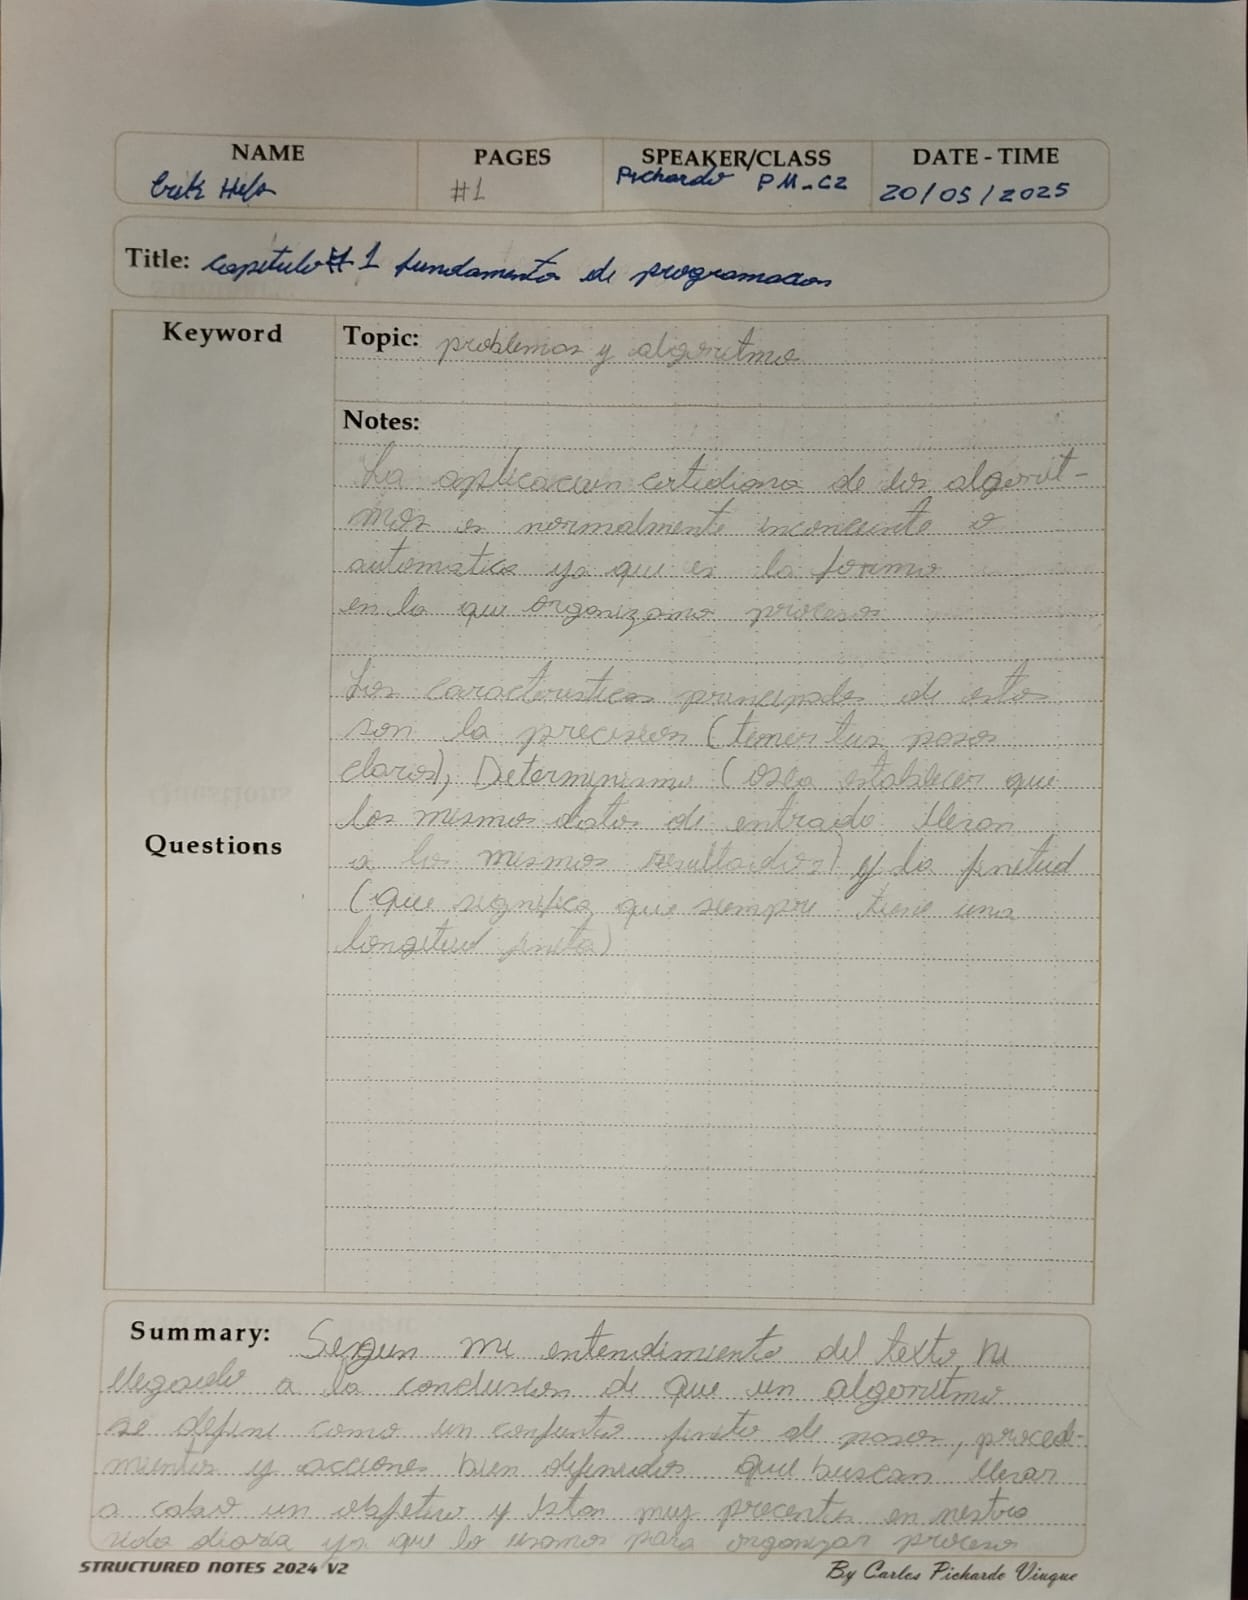 NAME PAGES SPEAKER/CLASS DATE - TIME
Erik #1 Pichardo PM-C2 20/05/2025
Title: Capitulo #1 fundamento de programacion
Keyword
Topic: problemas y algoritmo
Notes:
La aplicacion cotidiana de los algorit-
mos es normalmente inconciente o
automatica ya que es la forma
en la que organizamo procesos
Las caracteristicas principales de estos
son la precision (tener tus pasos
claros), Determinismo (osea establecer que
los mismos datos de entrada llevan
Questions
a los mismos resultados) y la finitud
(que significa que siempre tiene una
longitud finita)
Summary: Segun mi entendimiento del texto, he
llegado a la conclusion de que un algoritmo
se define como un conjunto finito de pasos, proced-
mientos y acciones bien definidos que buscan llevar
a cabo un objetivo y estan muy precentes en nestra
vida diaria ya que lo usamos para organizar proceso
STRUCTURED NOTES 2024 V2
By Carlos Pichardo Viuque